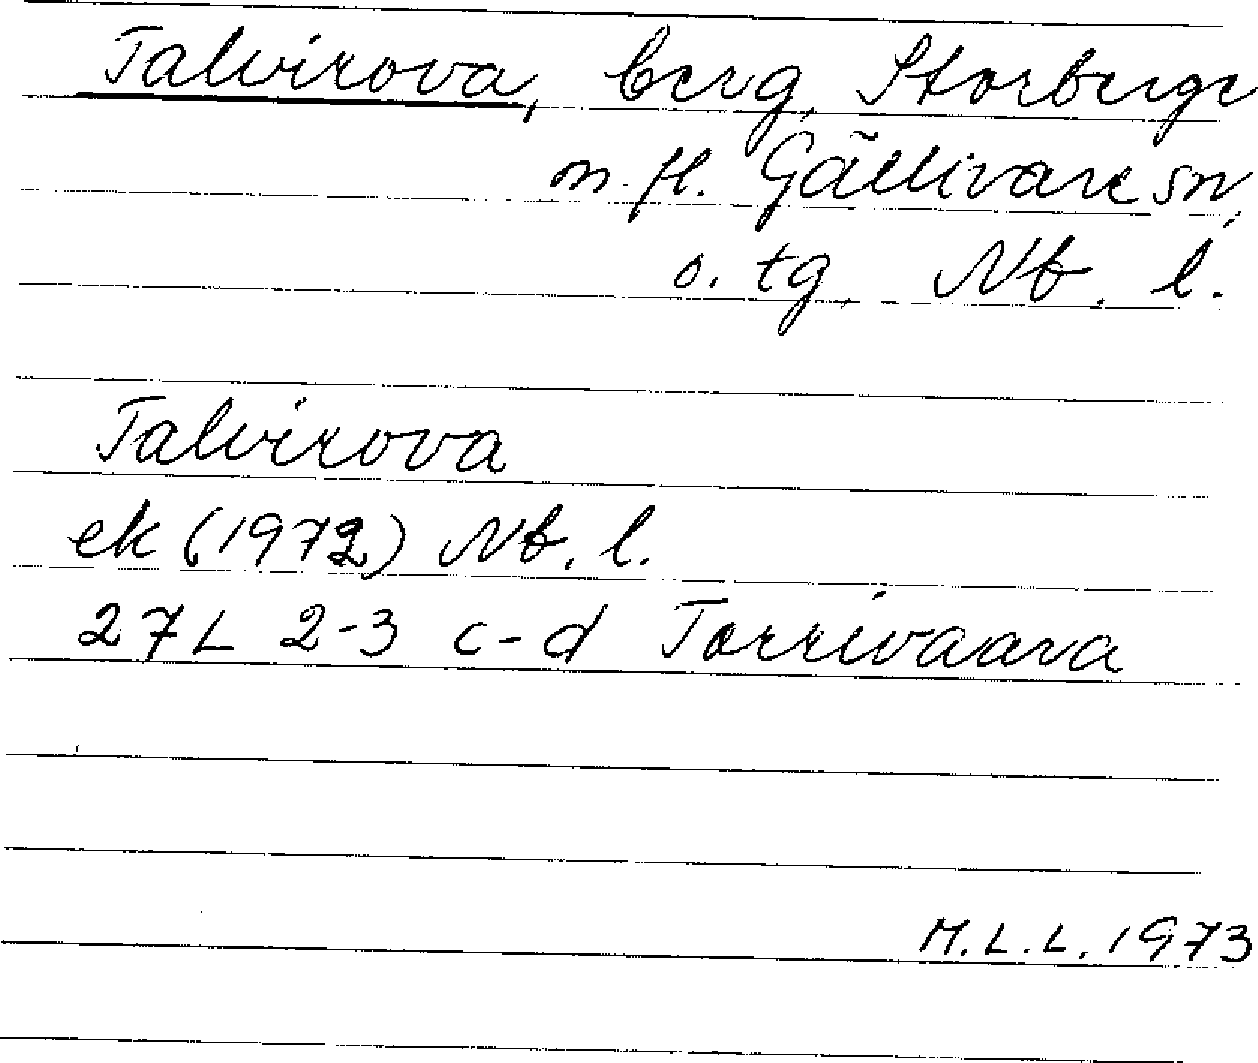 Talvirova, berg, Storberge
m. fl. Gällivare sn,
o. tg. Nb. l.
Talvirova
ek (1972) Nb. l.
27L 2-3 c-d Torrivaara
M.L.L. 1973